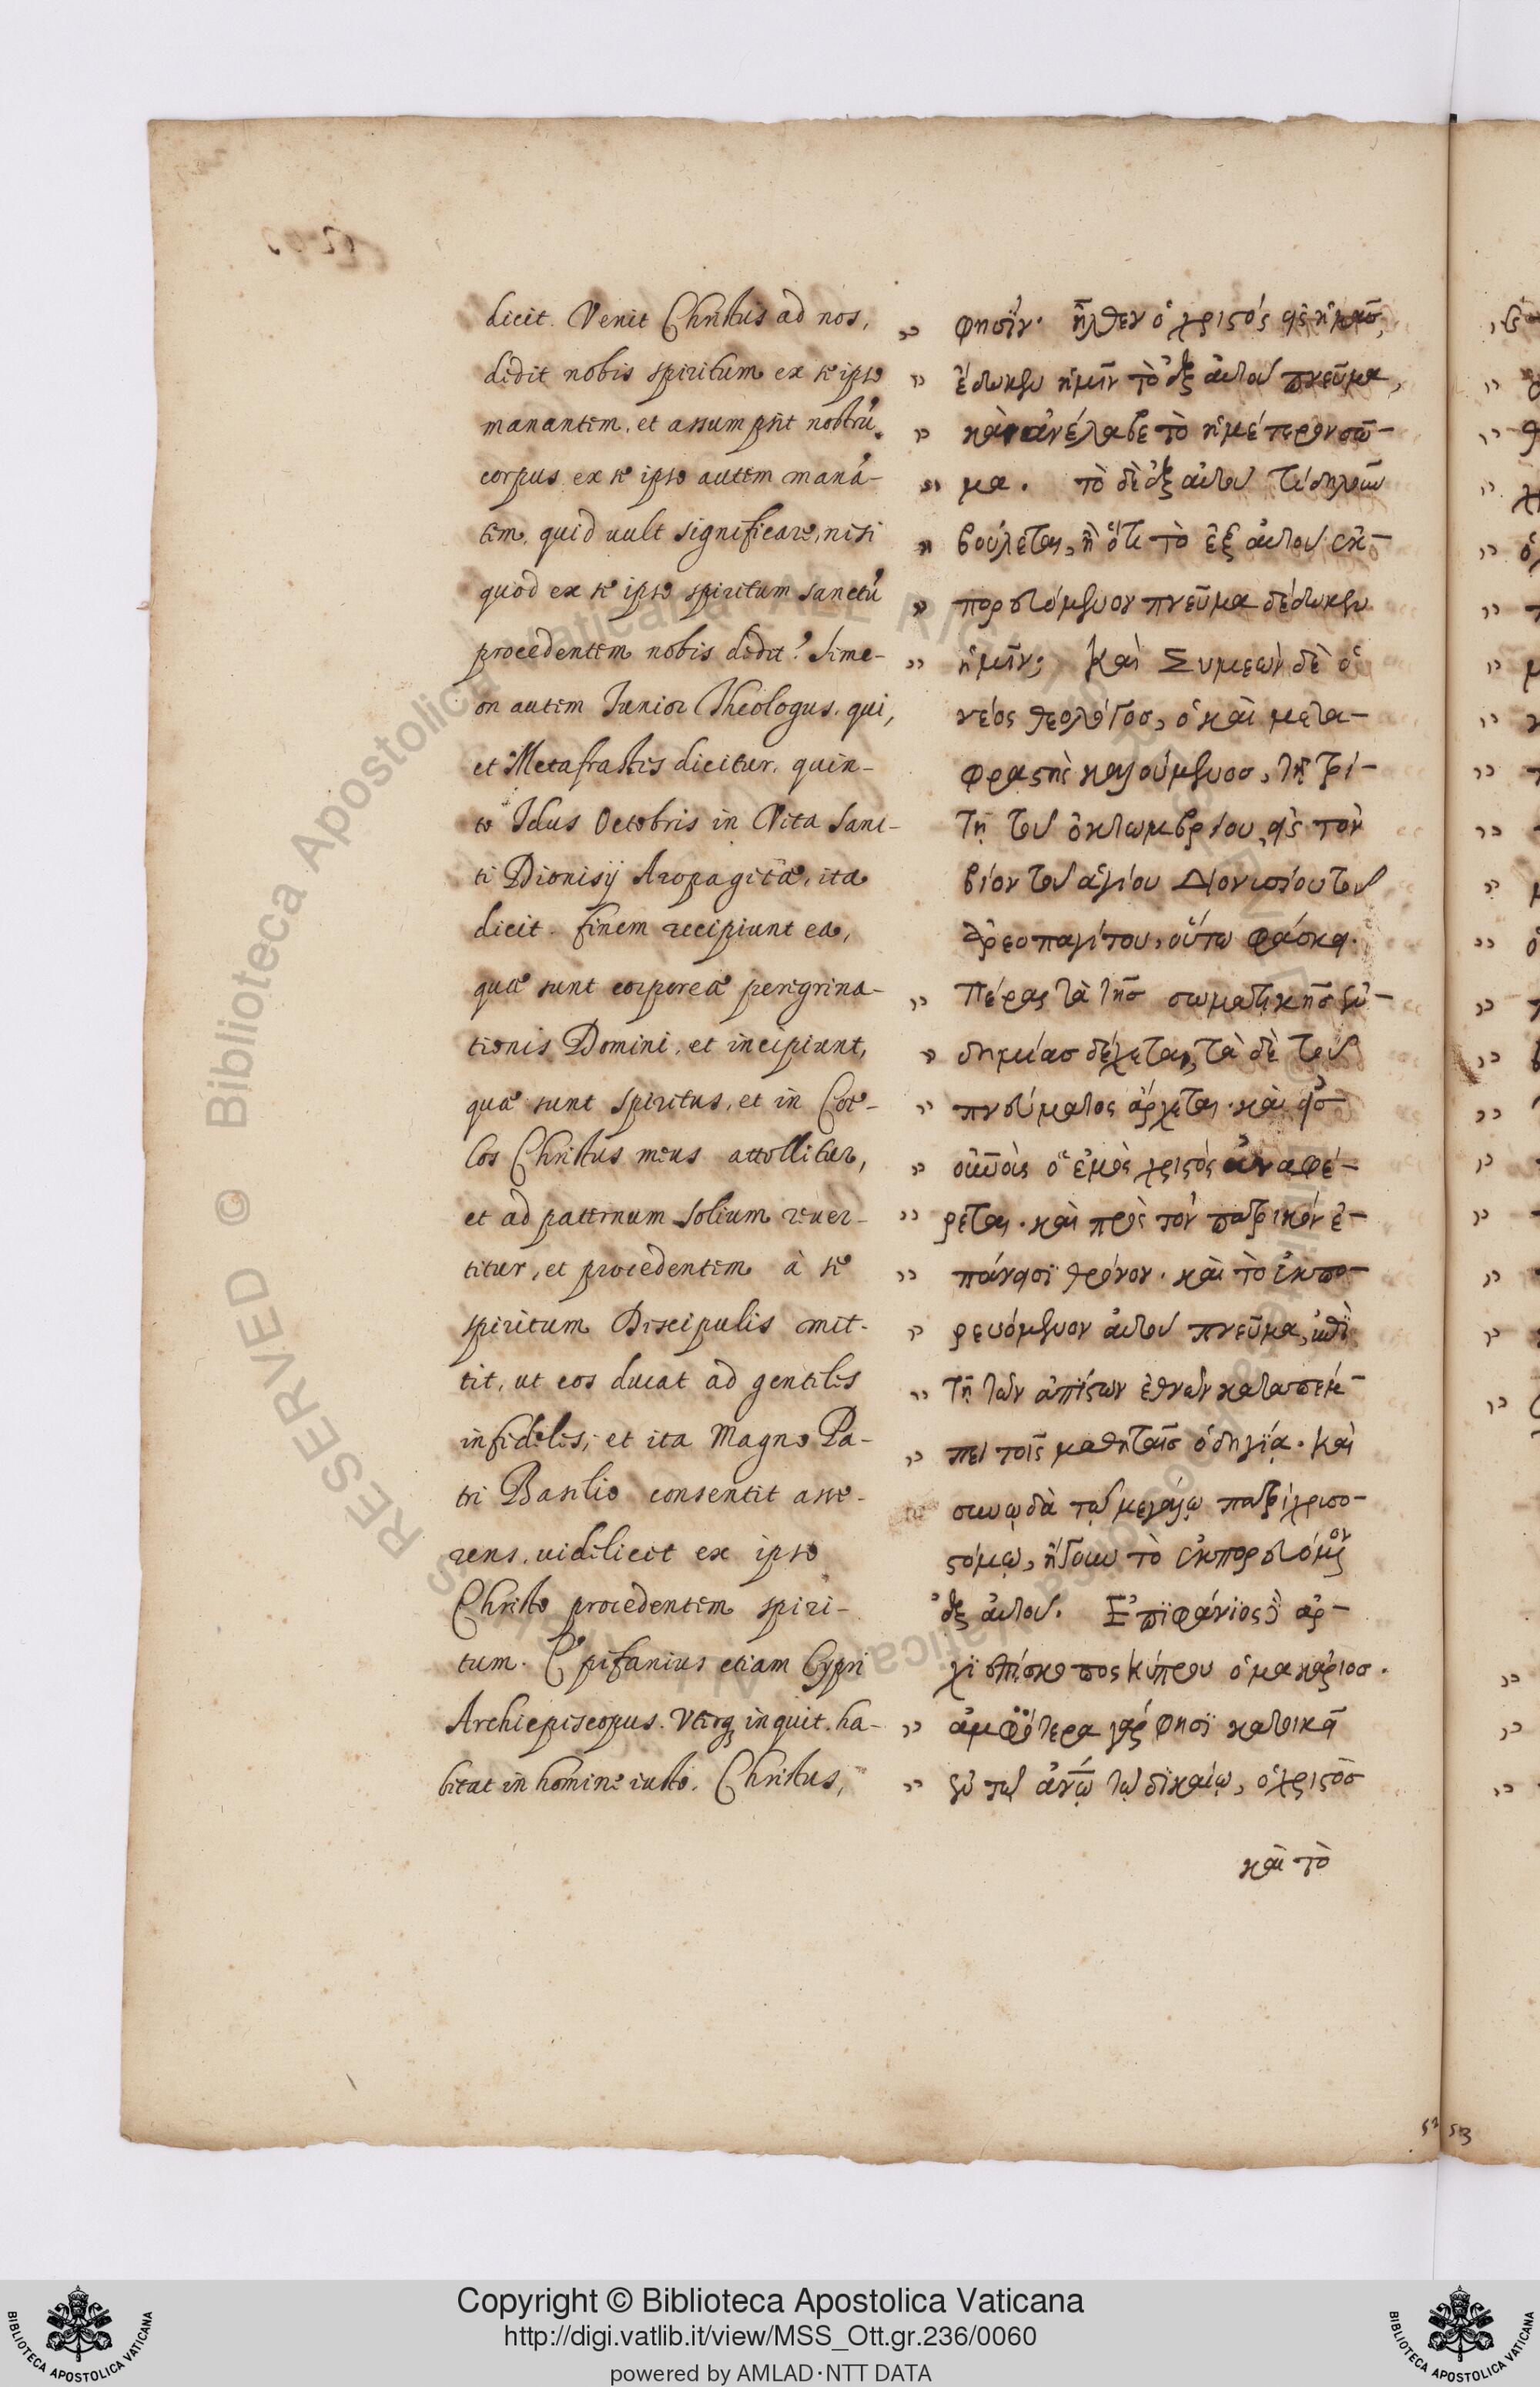 dicit. Venit Christus ad nos,
didit nobis spiritum ex se ipso
manantem, et assumpsit nostrũ
corpus. ex se ipso autem manã-
tem, quid uult significare, nisi
quod ex se ipso spiritum sanctũ
procedentem nobis dedit? Sime-
on autem Iunior Theologus, qui,
et Metafrastes dicitur, quin-
to Idus Octobris in Vita Sanc-
ti Dionisij Areopagitæ, ita
dicit. finem recipiunt ea,
quæ sunt corporeæ peregrina-
tionis Domini, et incipiunt,
quæ sunt Spiritus, et in Coe-
los Christus meus attollitur,
et ad paternum solium reuer-
titur, et procedentem à se
spiritum Discipulis mit-
tit, ut eos ducat ad gentiles
infideles; et ita Magno Pa-
tri Basilio consentit asse-
rens, uidelicet ex ipso
Christo procedentem spiri-
tum. Epifanius etiam Cypri
Archiepiscopus. Vterq; inquit. ha-
bitat in homine iusto. Christus,
φησὶν· ἦλθεν ὁ χριστός εἰς ἡμᾶς,
ἔδωκεν ἡμῖν τὸ ἐξ αὐτοῦ πνεῦμα,
καὶ ἀνέλαβε τὸ ἡμέτερον σῶ-
μα. τὸ δὲ ἐξ αὐτοῦ τί δηλοῦν
βούλεται, ἢ ὅτι τὸ ἐξ αὐτοῦ ἐκ-
πορευόμενον πνεῦμα δέδωκεν
ἡμῖν; Καὶ Συμεὼν δὲ ὁ
νέος θεολόγος, ὁ καὶ μετα-
φραστὴς καλούμενος, τῇ τρί-
τῃ τοῦ ὀκτωμβρίου, εἰς τὸν
βίον τοῦ ἁγίου Διονισίου τοῦ
Ἀρεοπαγίτου, οὕτω φάσκει.
Πέρας τὰ τῆς σωματικῆς ἐν-
δημίας δέχεται, τὰ δὲ τοῦ
πνεύματος ἄρχεται· καὶ εἰς
οὐνοὺς ὁ ἐμὸς χριστὸς ἀναφέ-
ρεται· καὶ πρὸς τὸν πατρικόν ἐ-
πάνεισι θρόνον· καὶ τὸ ἐκπο-
ρευόμενον αὐτοῦ πνεῦμα, ἐπὶ
τῇ τῶν ἀπίστων ἐθνῶν καταπέμ-
πει τοῖς μαθηταῖς ὁδηγίᾳ. Καὶ
συνῳδὰ τῷ μεγάλῳ πατρὶ χρισο-
στόμῳ, ἤγουν τὸ ἐκπορευόμενον
ἐξ αὐτοῦ. Ἐπιφάνιος δὲ ἀρ-
χιεπίσκοπος Κύπρου ὁ μακάριος.
ἀμφότερα γάρ φησι κατοικεῖ
ἐν τῷ ἀνῶ τῷ δικαίῳ, ὁ χριστὸς
καὶ τὸ
52
53
RESERVED © Biblioteca Apostolica Vaticana ALL RIGHTS RESERVED © Biblioteca Apostolica Vaticana ALL RIGHTS
BIBLIOTECA APOSTOLICA VATICANA
Copyright © Biblioteca Apostolica Vaticana
http://digi.vatlib.it/view/MSS_Ott.gr.236/0060
powered by AMLAD·NTT DATA
BIBLIOTECA APOSTOLICA VATICANA